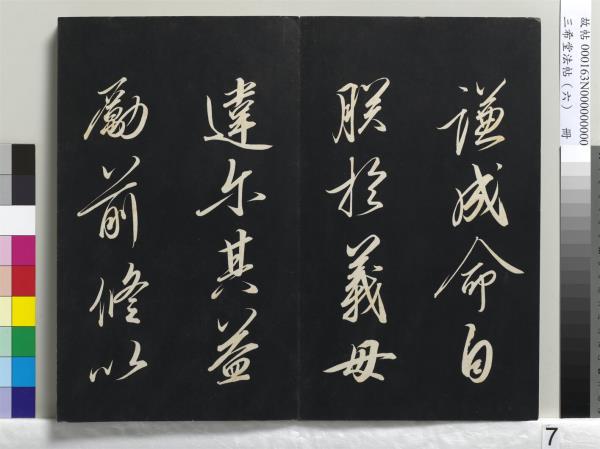 謙成命自
朕於義毋
違尔其益
勵前修以
故帖 000163N000000000
三希堂法帖（六） 冊
7